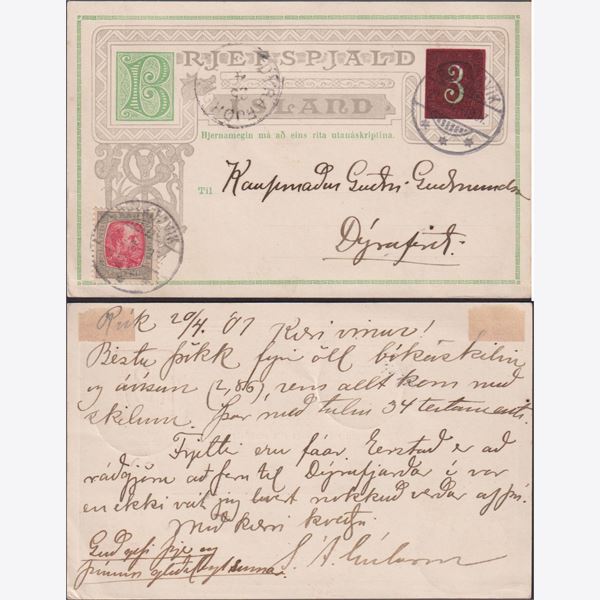 BRJEFSPJALD
ÍSLAND
3
Hjernamegin má að eins rita utanáskriptina.
Til Kaupmaður Guðni Guðmundsson
Dýrafirði.
Rvík 20/4. '07 Kæri vinur!
Bestu þökk fyrir öll bókaskilin
og ávísun (2,66), sens allt kom með
skilum. Þar með talin 34 testamenti.
Frjettir eru fáar. Eerstað er að
ráðgjöra að fara til Dýrafjarðar í vor
en ekki veit jeg hvert nokkuð verður af því.
Með kæri kveðju.
Guð gefi þjer og
þínum gleðilegt sumar.